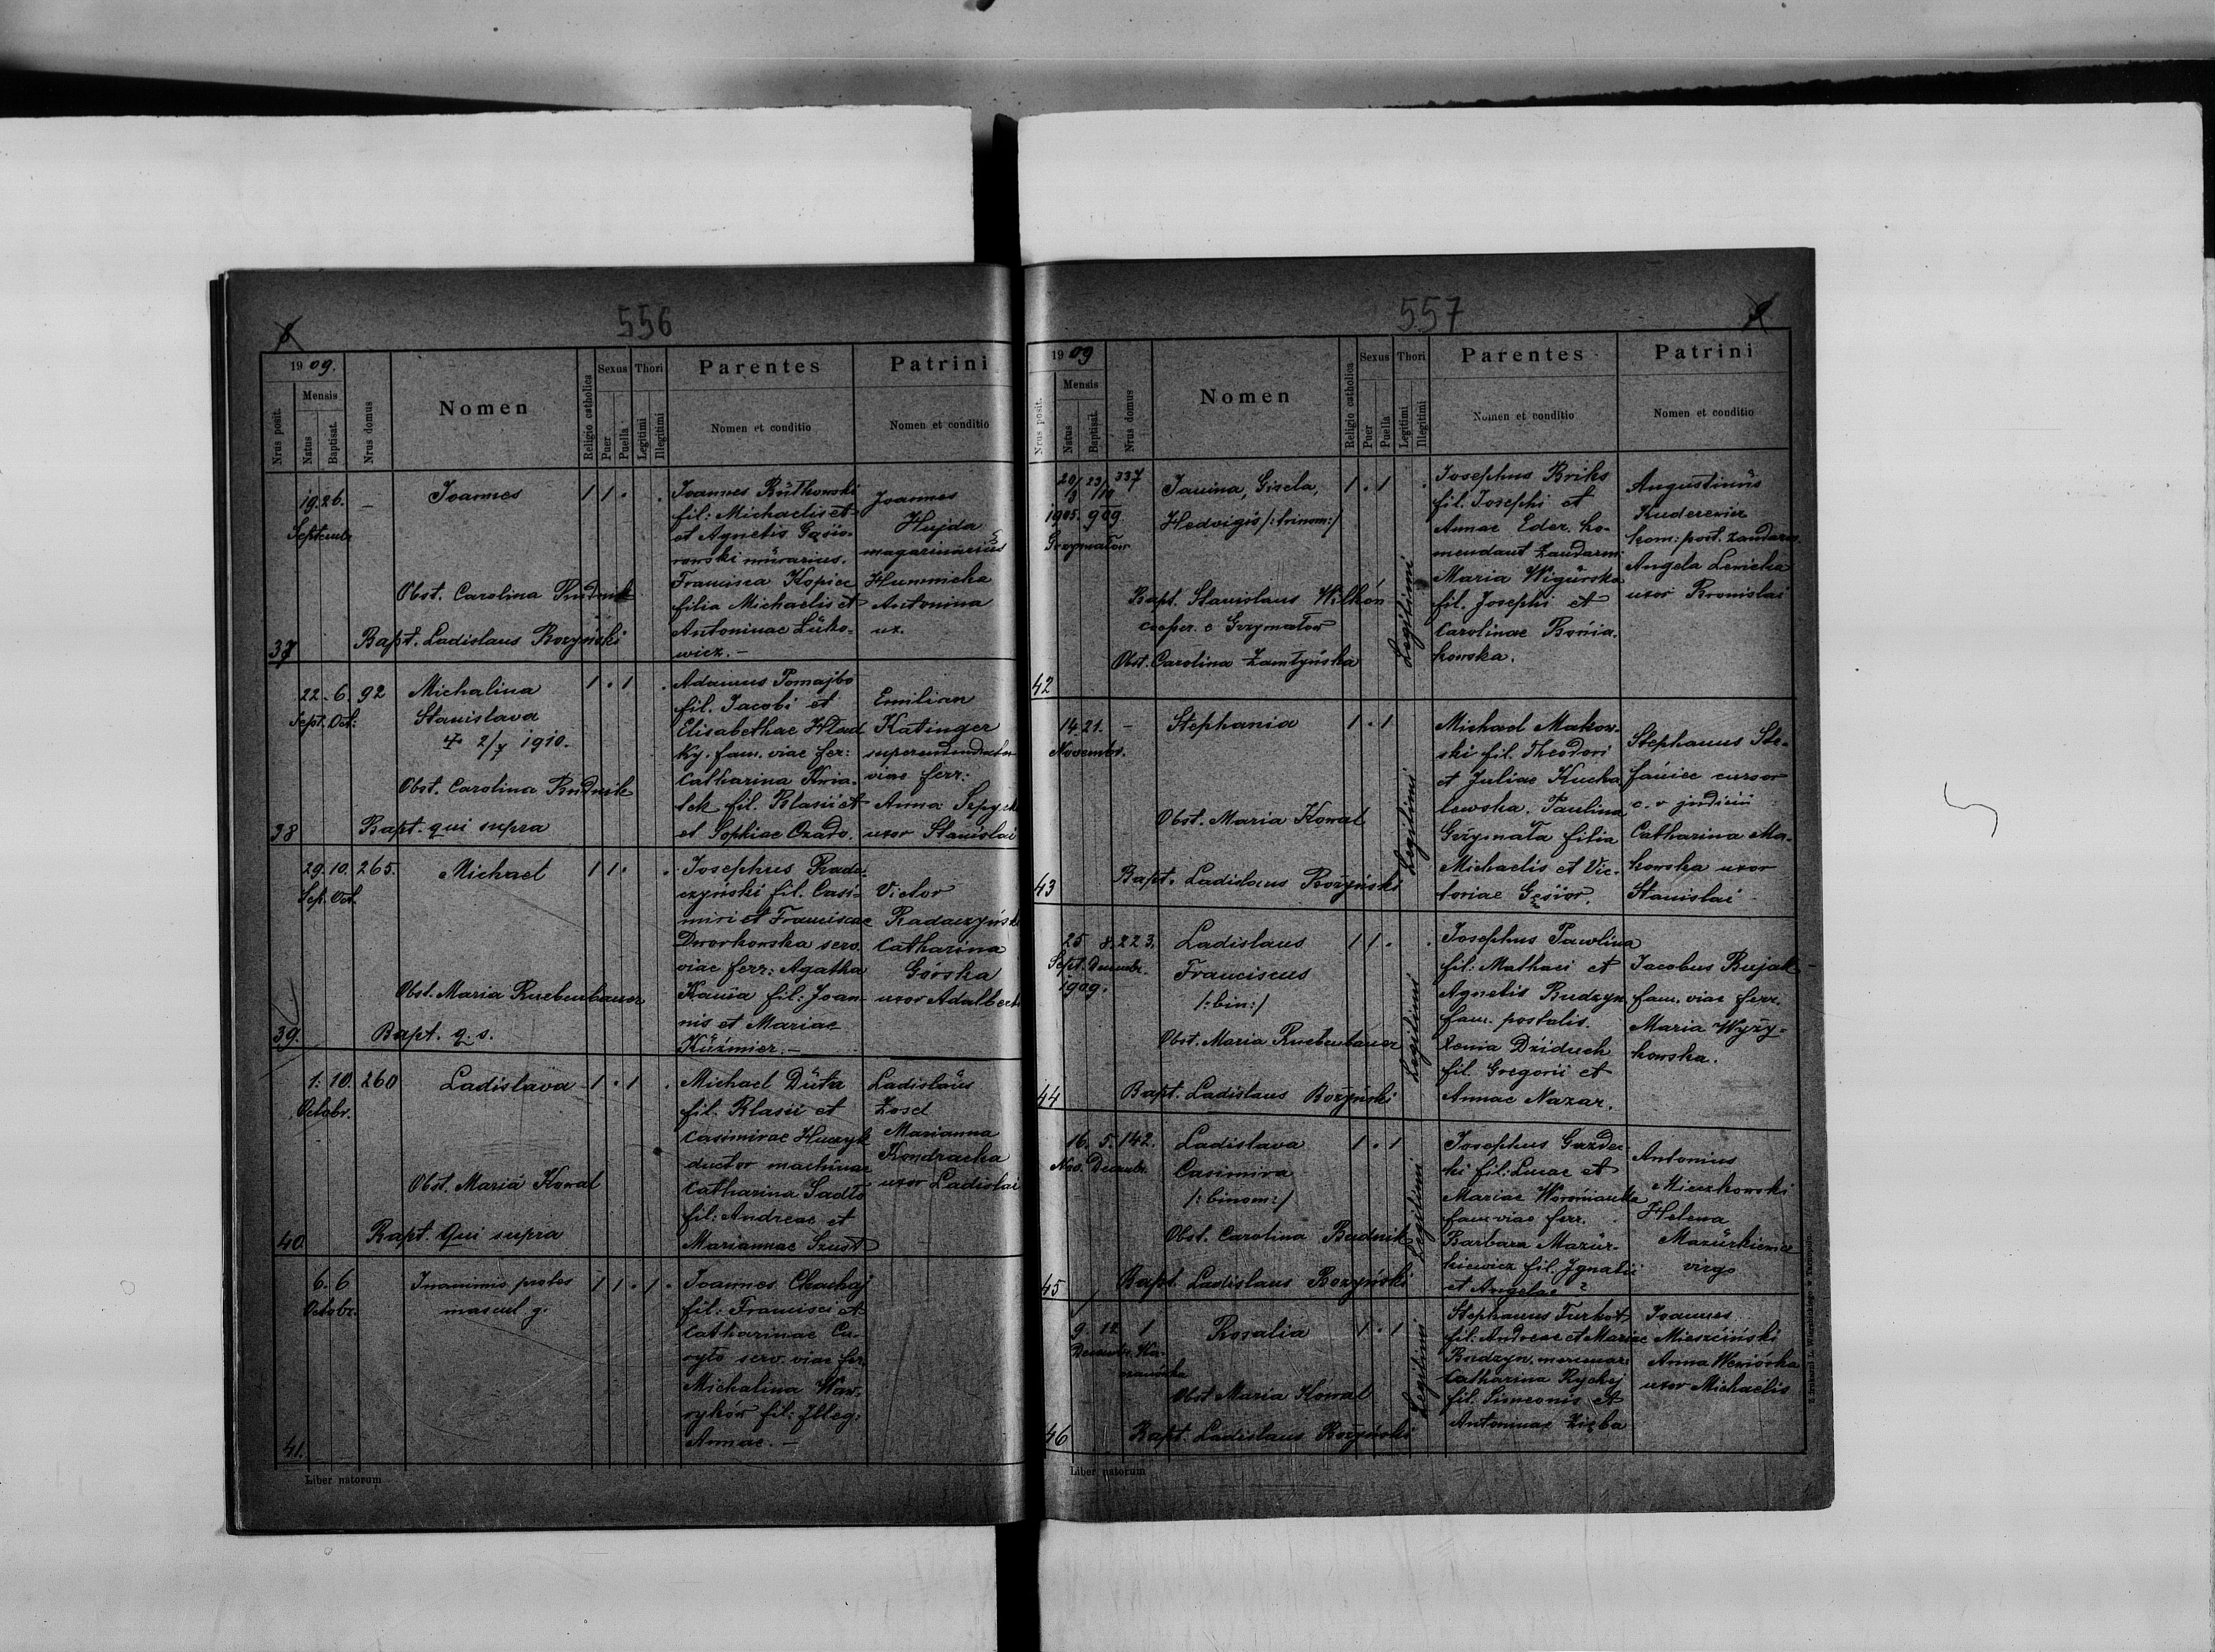 556
8
1909.
Nrus posit.
Mensis
Natus
Baptisat.
Nrus domus
Nomen
Religio catholica
Sexus
Puer
Puella
Thori
Legitimi
Illegitimi
Parentes
Nomen et conditio
Patrini
Nomen et conditio
37
19. 26. -
Septembr
Joannes
1 1 .
Obst. Carolina Rudnik
Bapt. Ladislaus Rozyński
Joannes Rutkowski
fil: Michaelis et
et Agnetis Gąsio-
rowski murarius.
Francisca Kopiec
filia Michaelis et
Antoninae Łuko-
wicz. -
Joannes
Hujda
magazinarius
Antonina
ux.
38
22. 6. 92
Sept. Oct:
Michalina
Stanislava
2/7 1910.
1 . 1
Obst. Carolina Rudnik
Bapt. qui supra
Adamus Pomajbo
fil. Jacobi et
Elisabethae Hład
ky. fam. viae fer:
Catharina Knia-
fil. Blasii et
et Sophiae Ozado.
Emilian
Katinger
viae ferr:
Anna
uxor Stanislai
39.
29. 10. 265.
Sep. Oct.
Michael
1 1 .
Obst. Maria Ruebenbauer
Bapt. q. s.
Josephus Rada-
czyński fil. Casi-
miri et Franciscae
Dworkowska serv.
viae ferr: Agatha
Kania fil: Joan-
nis et Mariae
Kuźmier. -
Victor
Radaczyński
Catharina
Górska
uxor Adalberti
40
1. 10. 260
Octobr.
Ladislava
1 . 1
Obst. Maria Kowal
Bapt. Qui supra
Michael Duta
fil. Blasii et
Casimirae Huczyk
ductor machinae
Catharina Sadło
fil: Andreae et
Mariannae Szust
Ladislaus
Zosel
Marianna
Kondracka
uxor Ladislai
41.
6. 6
Octobr.
Inanimis proles
mascul. g.
1 1 . 1 .
Joannes Chuchaj
fil: Francisci et
Catharinae Cu-
ryło serv. viae fer.
Michalina Waw-
ryków fil: Illeg:
Annae. -
Liber natorum
557
9
1909
Nrus posit.
Mensis
Natus
Baptisat.
Nrus domus
Nomen
Religio catholica
Sexus
Puer
Puella
Thori
Legitimi
Illegitimi
Parentes
Nomen et conditio
Patrini
Nomen et conditio
42
20/3 23/10 337
1905. 909
Grzymałow
Janina, Gisela,
Hedvigis /:trinom:/
1 . 1
Legitimi
Bapt. Stanislaus Wilkón
cooper. e Grzymałow
Obst. Carolina Zamłyńska
Josephus Briks
fil. Josephi et
Annae Eder. ko-
mendant żandarm:
Maria Wigurska
fil. Josephi et
Carolinae Bonia-
kowska.
Augustinus
Kuderewicz
kom: post. żandarm.
Angela Lewicka
uxor Bronislai
43
14. 21. -
Novembr.
Stephania
1 . 1
Legitimi
Obst. Maria Kowal
Bapt. Ladislaus Rożyński
Michael Makow-
ski fil. Theodori
et Juliae Kucha
lewska. Paulina
Grzymała filia
Michaelis et Vic-
toriae Gąsior.
Stephanus Ste-
faniec cursor
c. r. judicii
Catharina Ma-
kowska uxor
Stanislai
44
25 8. 223.
Sept. Decembr.
1909.
Ladislaus
Franciscus
/:bin:/
1 1 .
Legitimi
Obst. Maria Ruebenbauer
Bapt. Ladislaus Rożyński
Josephus Pawlina
fil: Mathaei et
Agnetis Budzyn.
fam. postalis.
Xenia Dziduch
fil. Gregorii et
Annae Nazar.
Jacobus Bujak
fam. viae ferr.
Maria Wyży-
kowska.
45
16. 5. 142.
Nov. Decembr.
Ladislava
Casimira
/:binom:/
1 . 1
Legitimi
Obst. Carolina Budnik
Bapt. Ladislaus Rozyński
Josephus Gazdec
ki fil: Lucae et
Mariae Woronianka
fam viae ferr.
Barbara Mazur-
kiewicz fil. Ignatii
et Angelae ?
Antonius
Mieczkowski
Helena
Mazurkiewicz
virgo
46
9. 12 1
Decembr.
Rosalia
1 . 1
Legitimi
Obst Maria Kowal
Bapt. Ladislaus Rożyński
Stephanus Turkot
fil: Andreae et Mariae
Budzyn. mercenar:
Catharina Rychej
fil. Simeonis et
Antoninae Zięba
Joannes
Mieszciński
Anna Wewiórka
uxor Michaelis
Liber natorum
Z drukarni L. Wierzbickiego w Tarnopolu.